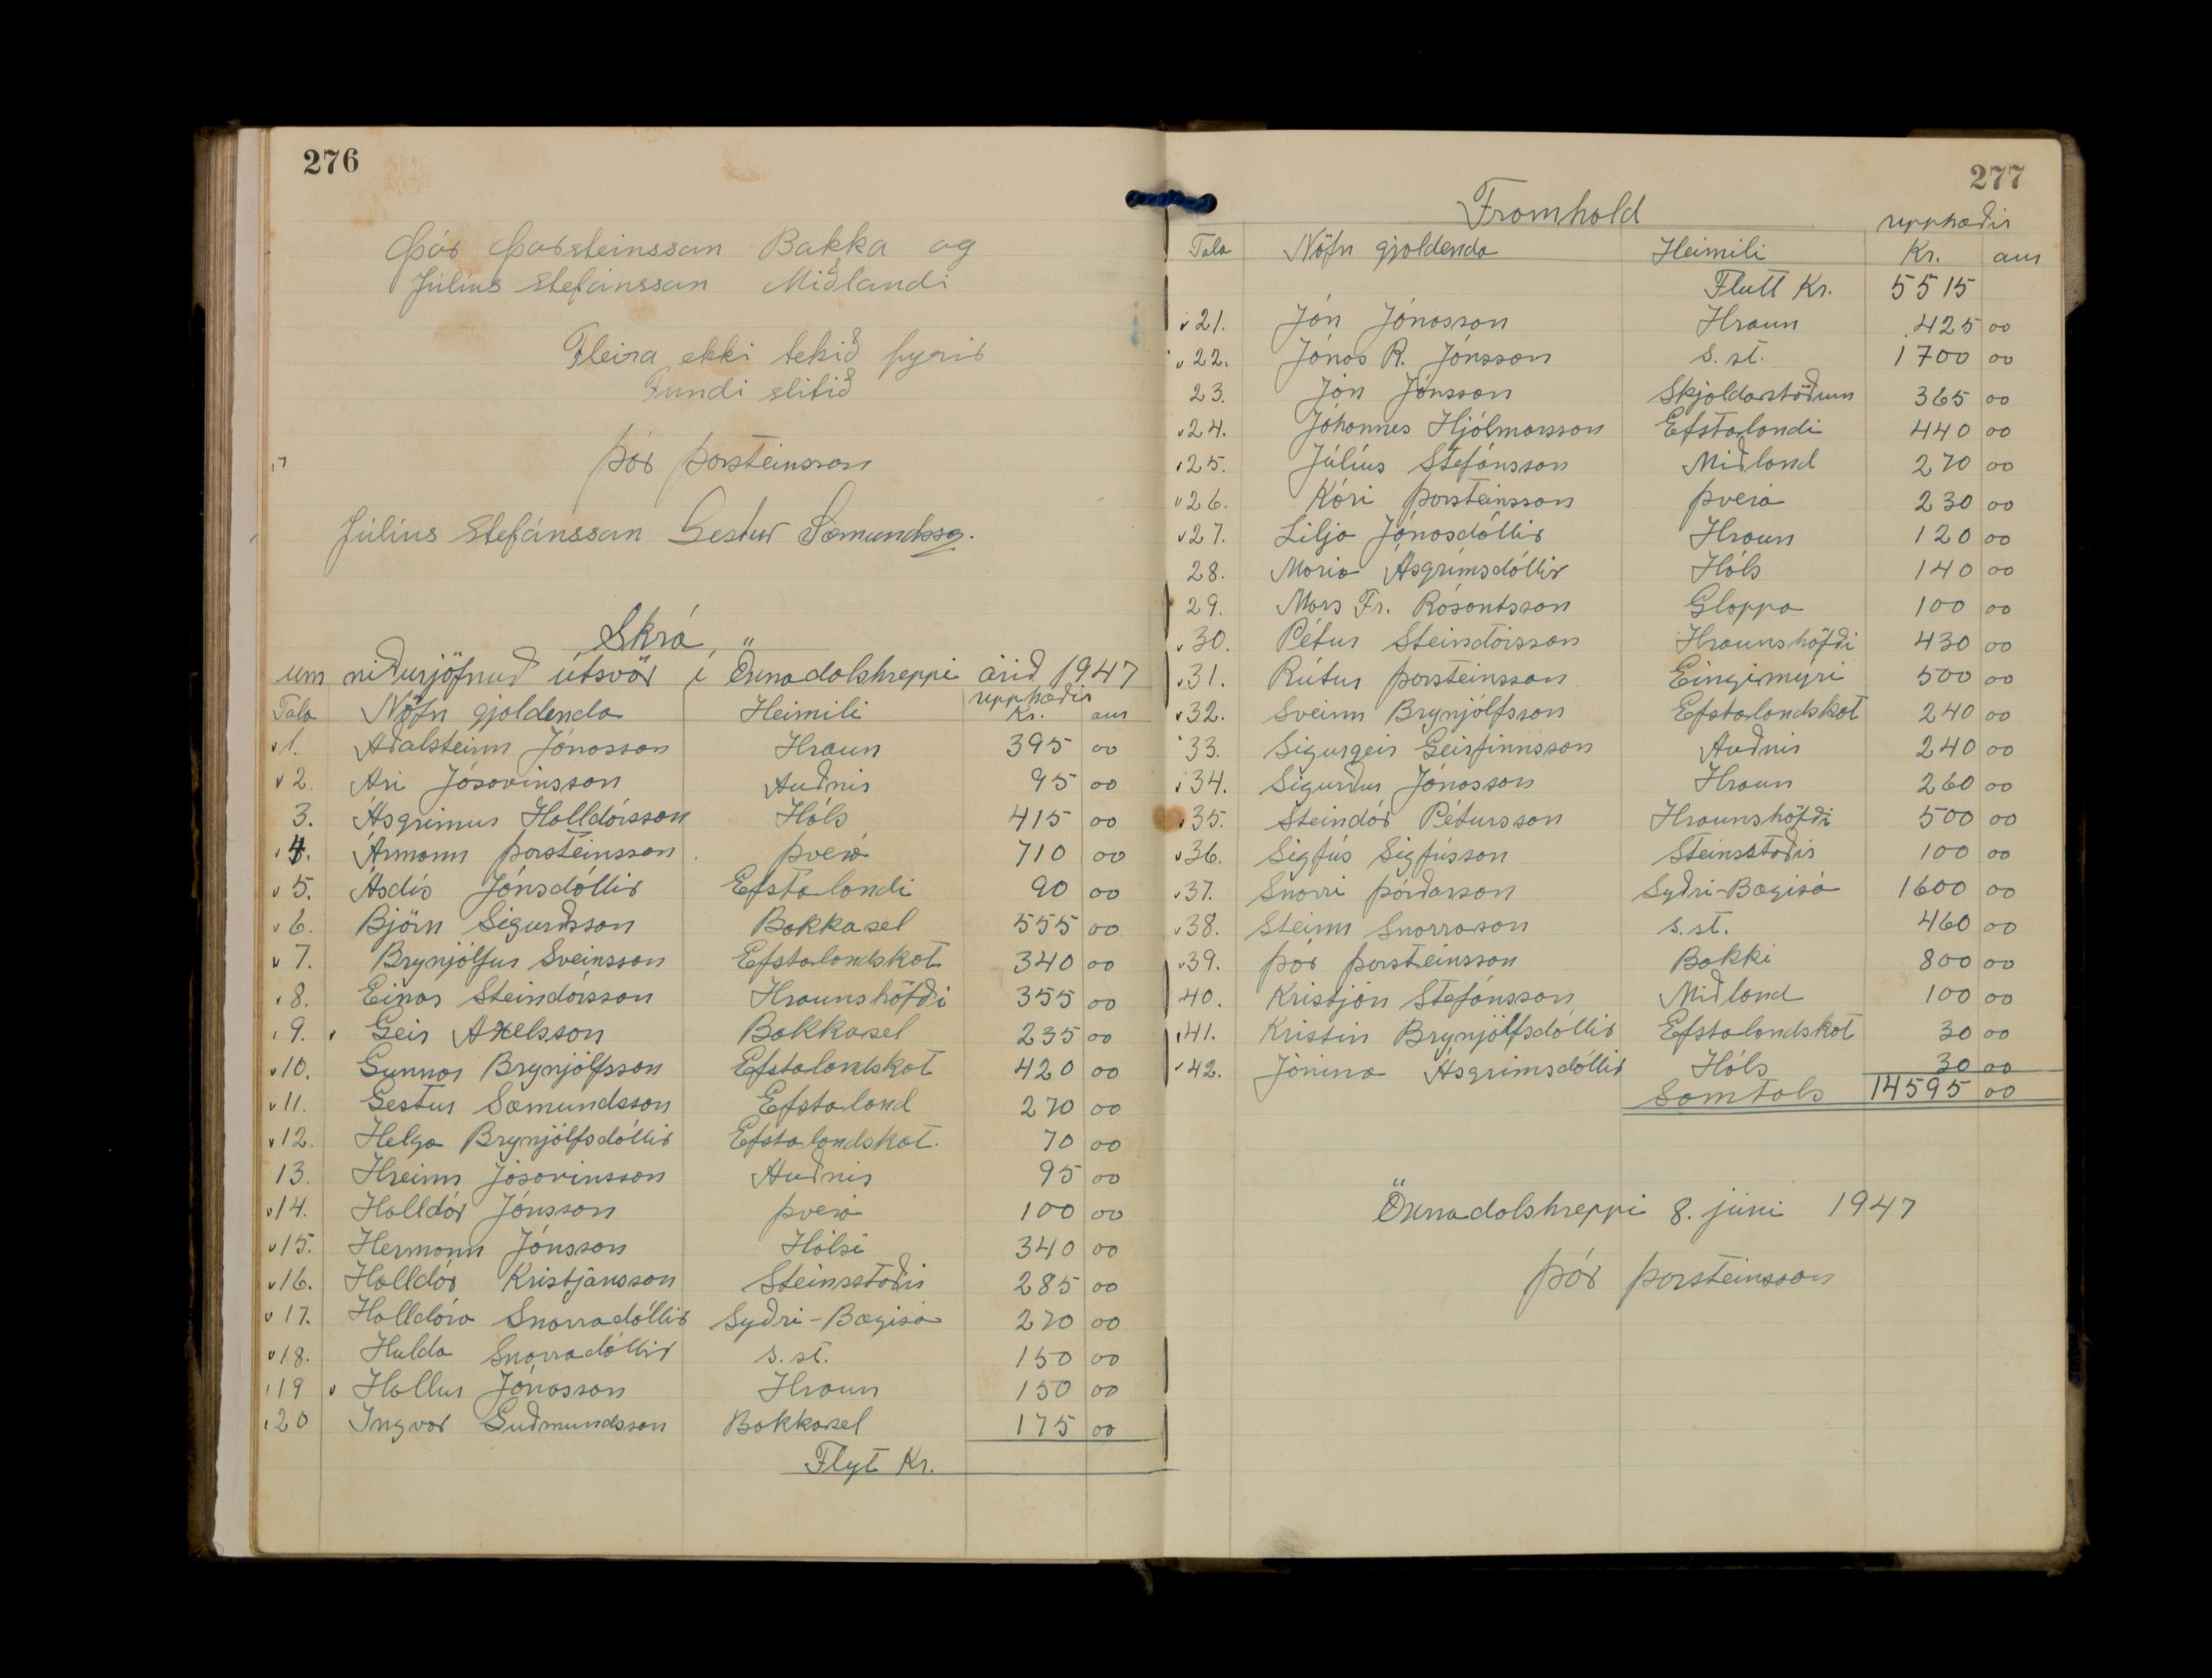 276
Þór Þorsteinsson Bakka og
Júlíus Stefánsson Miðlandi
Fleira ekki tekið fyrir
Fundi slitið
Þór Þorsteinsson
Júlíus Stefánsson Gestur Sæmundsso.
Skrá
um niðurjöfnuð útsvör í Öxnadalshreppi árið 1947
Tala Nöfn gjaldenda Heimili upphæðir Kr. aur
v 1. Aðalsteinn Jónasson Hraun 395 00
v 2. Ari Jósavinsson Auðnir 95 00
3. Ásgrímur Halldórsson Háls 415 00
v 4. Ármann Þorsteinsson Þverá 710 00
v 5. Ásdís Jónsdóttir Efstalandi 90 00
v 6. Björn Sigurðsson Bakkasel 555 00
v 7. Brynjólfur Sveinsson Efstalandskot 340 00
v 8. Einar Steindórsson Hraunshöfði 355 00
v 9. v Geir Axelsson Bakkasel 235 00
v 10. Gunnar Brynjólfsson Efstalandskot 420 00
v 11. Gestur Sæmundsson Efstaland 270 00
v 12. Helga Brynjólfsdóttir Efstalandskot. 70 00
13. Hreinn Jósavinsson Auðnir 95 00
v 14. Halldór Jónsson Þverá 100 00
v 15. Hermann Jónsson Hálsi 340 00
v 16. Halldór Kristjánsson Steinsstaðir 285 00
v 17. Halldóra Snorradóttir Syðri-Bægisá 270 00
v 18. Hulda Snorradóttir s. st. 150 00
v 19 v Hallur Jónasson Hraun 150 00
v 20 Ingvar Guðmundsson Bakkasel 175 00
Flyt Kr.
277
Framhald
upphæðir
Tala Nöfn gjaldenda Heimili Kr. aur
Flutt Kr. 5515
v 21. Jón Jónasson Hraun 425 00
v 22. Jónas R. Jónsson s. st. 1700 00
23. Jón Jónsson Skjaldarstöðum 365 00
v 24. Jóhannes Hjálmarsson Efstalandi 440 00
v 25. Júlíus Stefánsson Miðland 270 00
v 26. Kári Þorsteinsson Þverá 230 00
v 27. Lilja Jónasdóttir Hraun 120 00
28. María Ásgrímsdóttir Háls 140 00
29. Mars Fr. Rósantsson Gloppa 100 00
v 30. Pétur Steindórsson Hraunshöfði 430 00
v 31. Rútur Þorsteinsson Eingimýri 500 00
v 32. Sveinn Brynjólfsson Efstalandskot 240 00
33. Sigurgeir Geirfinnsson Auðnir 240 00
v 34. Sigurður Jónasson Hraun 260 00
v 35. Steindór Pétursson Hraunshöfði 500 00
v 36. Sigfús Sigfússon Steinsstaðir 100 00
v 37. Snorri Þórðarson Syðri-Bægisá 1600 00
v 38. Steinn Snorrason s. st. 460 00
v 39. Þór Þorsteinsson Bakki 800 00
40. Kristján Stefánsson Miðland 100 00
v 41. Kristín Brynjólfsdóttir Efstalandskot 30 00
v 42. Jónína Ásgrímsdóttir Háls 30 00
Samtals 14595 00
Öxnadalshreppi 8. júní 1947
Þór Þorsteinsson